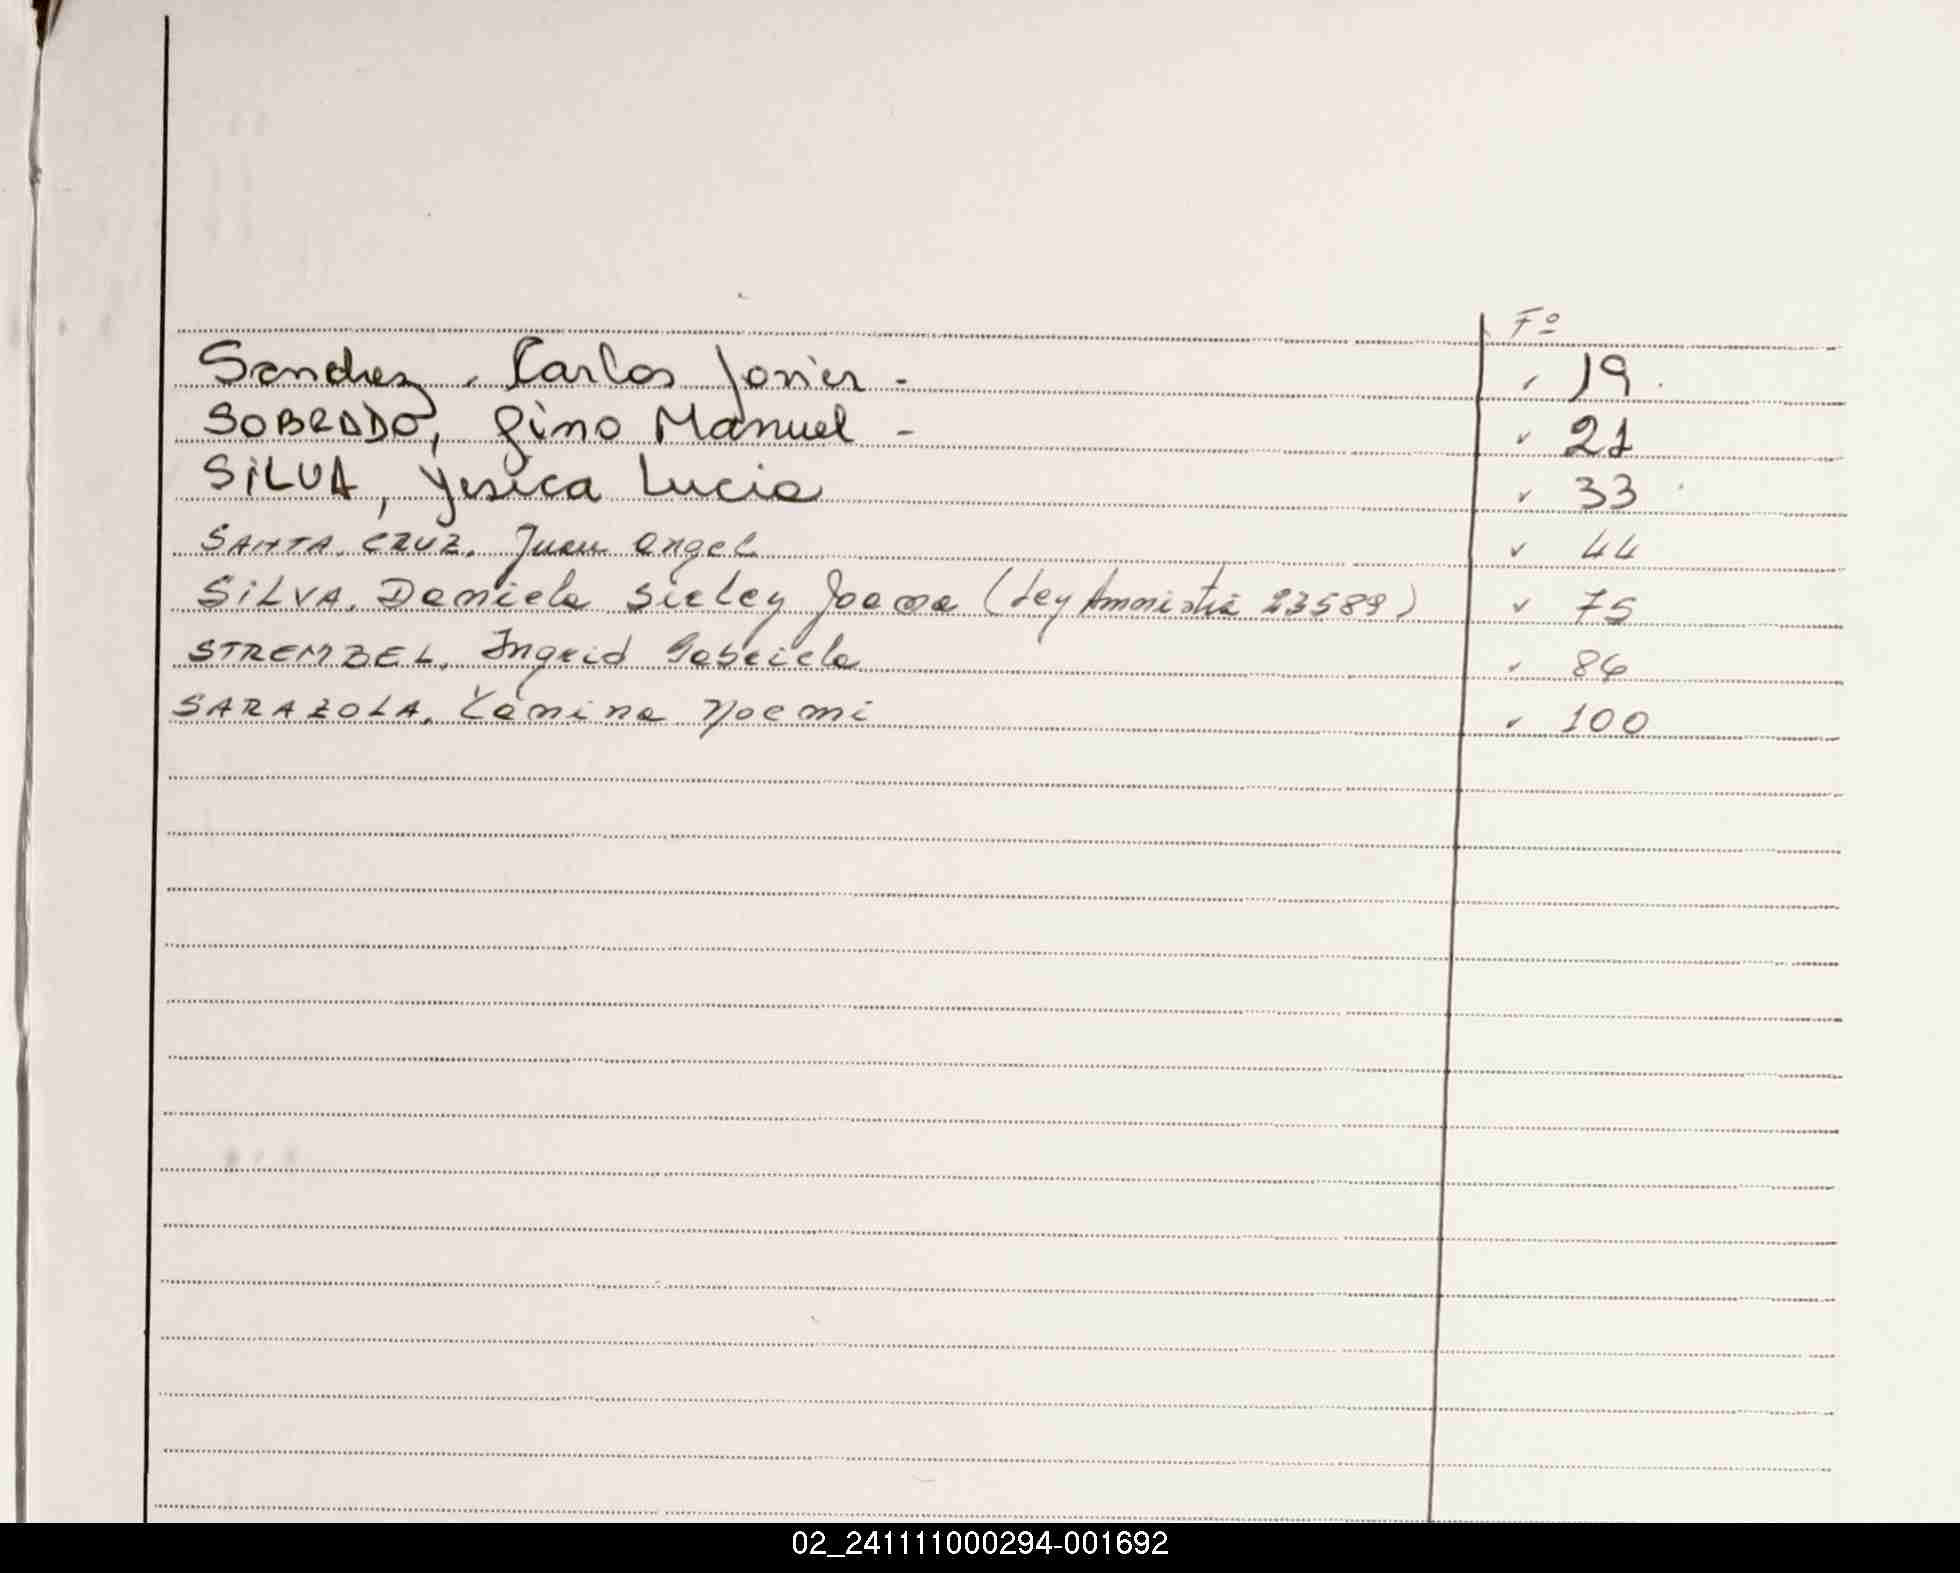 Fº
Sanchez, Carlos Javier - 19
SOBRADO, Gino Manuel - 21
SILVA, Yesica Lucia 33
SANTA CRUZ, Juan Angel 44
SILVA, Daniela Joana (Ley Amnistia 23589) 75
STREMBEL, Ingrid Gabriela 86
SARAZOLA, Yanina Noemi 100
02_241111000294-001692